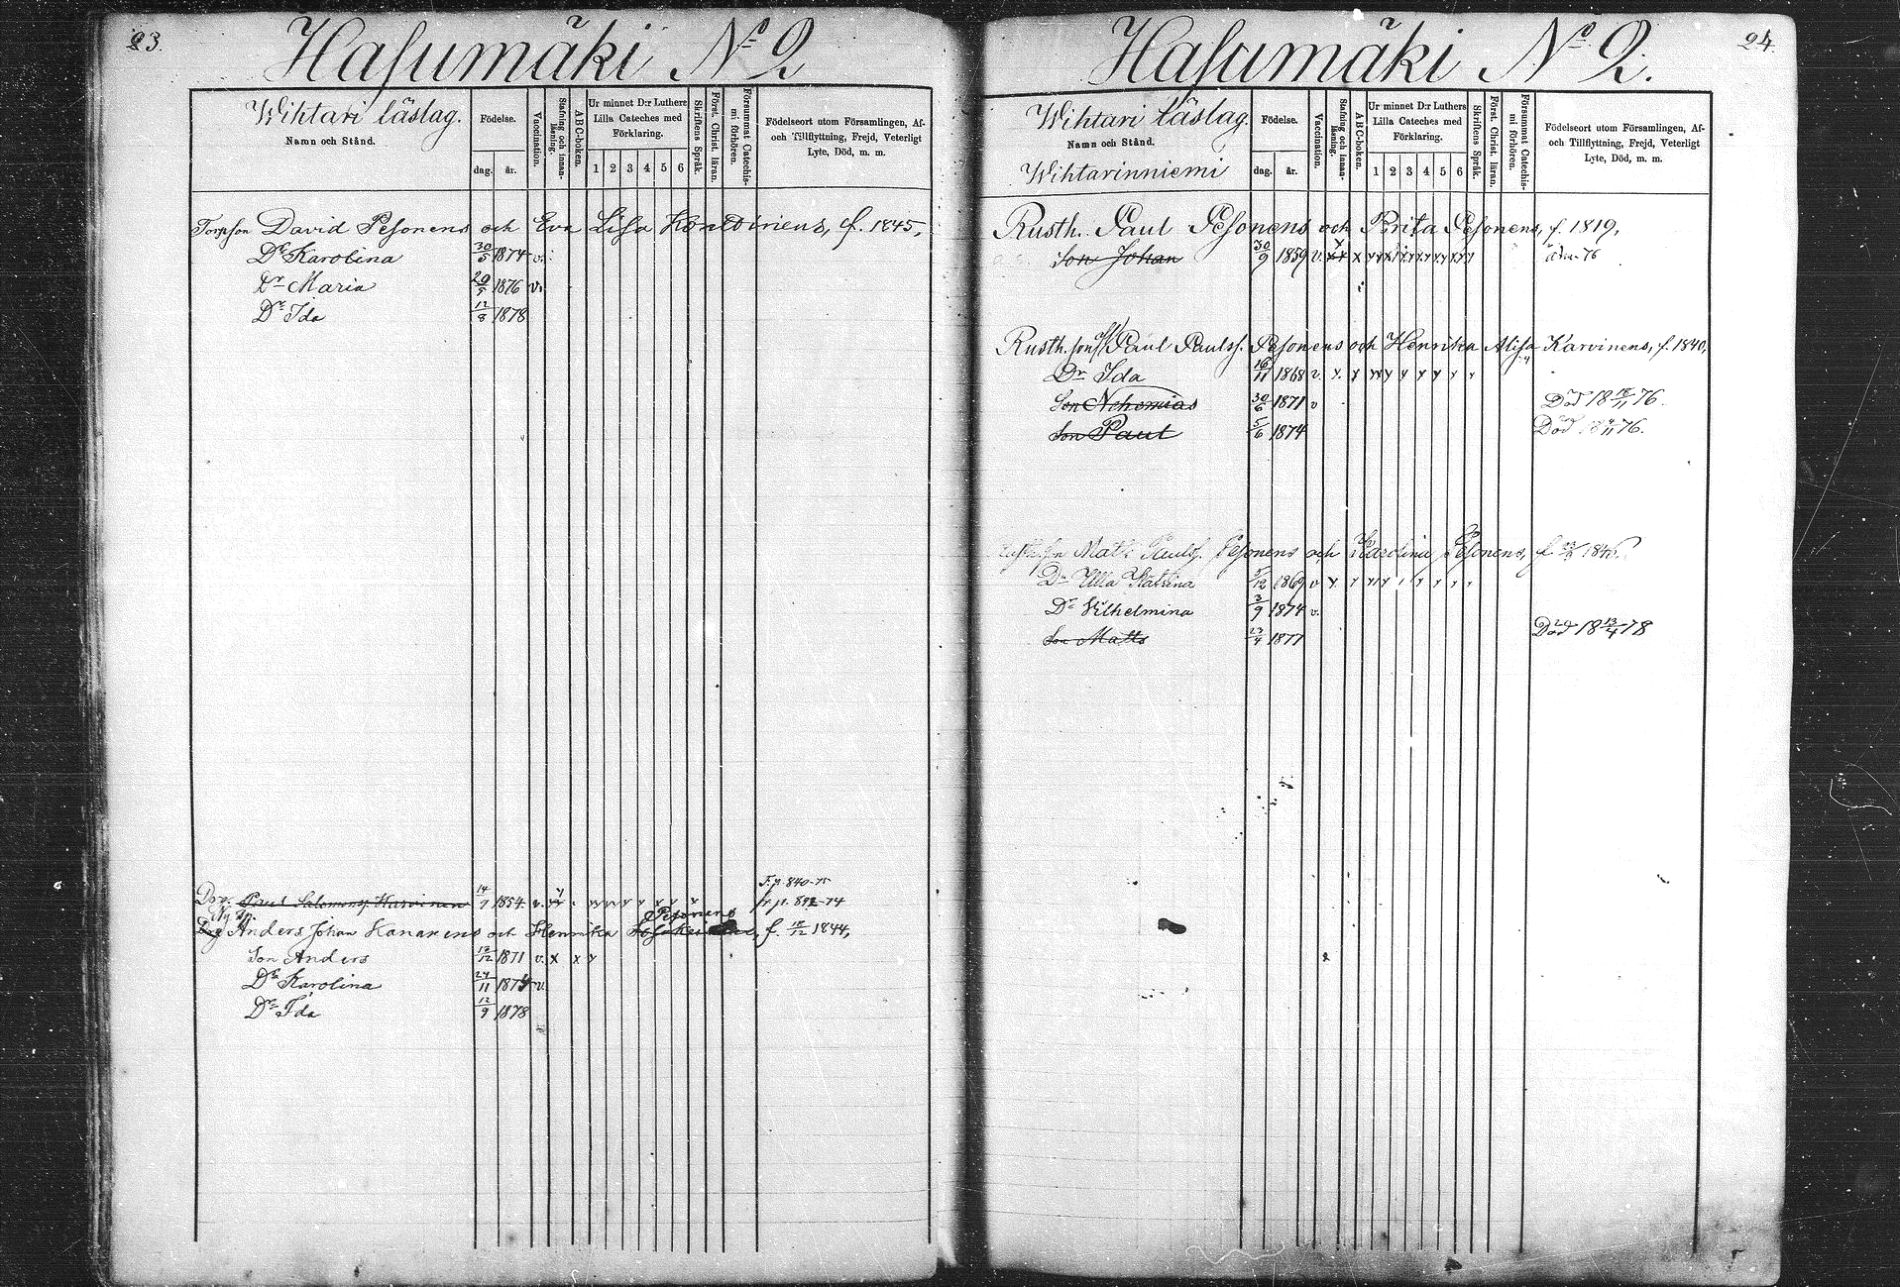 23.
Hasumäki No 2
Wihtari läslag.
Namn och Stånd.
Födelse.
dag.
år.
Vaccination.
Stafning och innan-läsning.
ABC-boken.
Ur minnet D:r Luthers
Lilla Cateches med
Förklaring.
1 2 3 4 5 6
Skriftens Språk.
Först. Christ. läran.
Försummat Catechis-mi förhören.
Födelseort utom Församlingen, Af-
och Tillflyttning, Frejd, Veterligt
Lyte, Död, m. m.
Torpson David Pesonens och Eva Lisa f. 1845,
Dr Karolina 30/5 1874 v.
Dr Maria 1876 v.
Dr Ida 12/8 1878
Paul Salomonss. Karvinen 14/7 1854 v.
F.p. 840-75
fr. p. 892-74
Pesonens
Anders Johan Hananens och Henrika f. 1844,
Son Anders 1871 v. x x y
Dr Karolina 24/11 1874 v.
Dr Ida 12/9 1878
24.
Hasumäki No 2.
Wihtari läslag.
Namn och Stånd.
Wihtarinniemi
Födelse.
dag.
år.
Vaccination.
Stafning och innan-läsning.
ABC-boken.
Ur minnet D:r Luthers
Lilla Cateches med
Förklaring.
1 2 3 4 5 6
Skriftens Språk.
Först. Christ. läran.
Försummat Catechis-mi förhören.
Födelseort utom Församlingen, Af-
och Tillflyttning, Frejd, Veterligt
Lyte, Död, m. m.
Rusth. Paul Pesonens och Brita Pesonens, f. 1819,
Son Johan 30/9 1859 v.
Rusth. son Paul Paulss. Pesonens och Henrika Alisa Karvinens, f. 1840,
Dr Ida 16/11 1868 v.
Son Nehemias 30/6 1871 v Död
Son Paul 5/6 1874 Död
Matts Paulss. Pesonens och Karolina Pesonens, f.
Dr Ulla Katrina 5/12 1869 v
Dr Vilhelmina 3/9 1874 v.
Son Matts 1877 Död 18 13/4 78